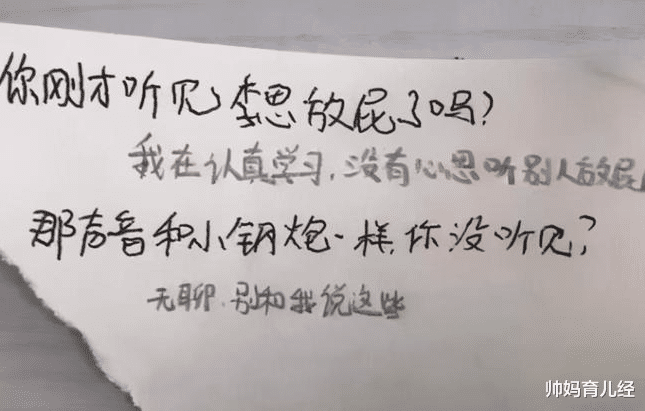 你刚才听见李思放屁了吗?
我在认真学习,没有心思听别人放屁
那声音和小钢炮一样,你没听见?
无聊.别和我说这些
帅妈育儿经